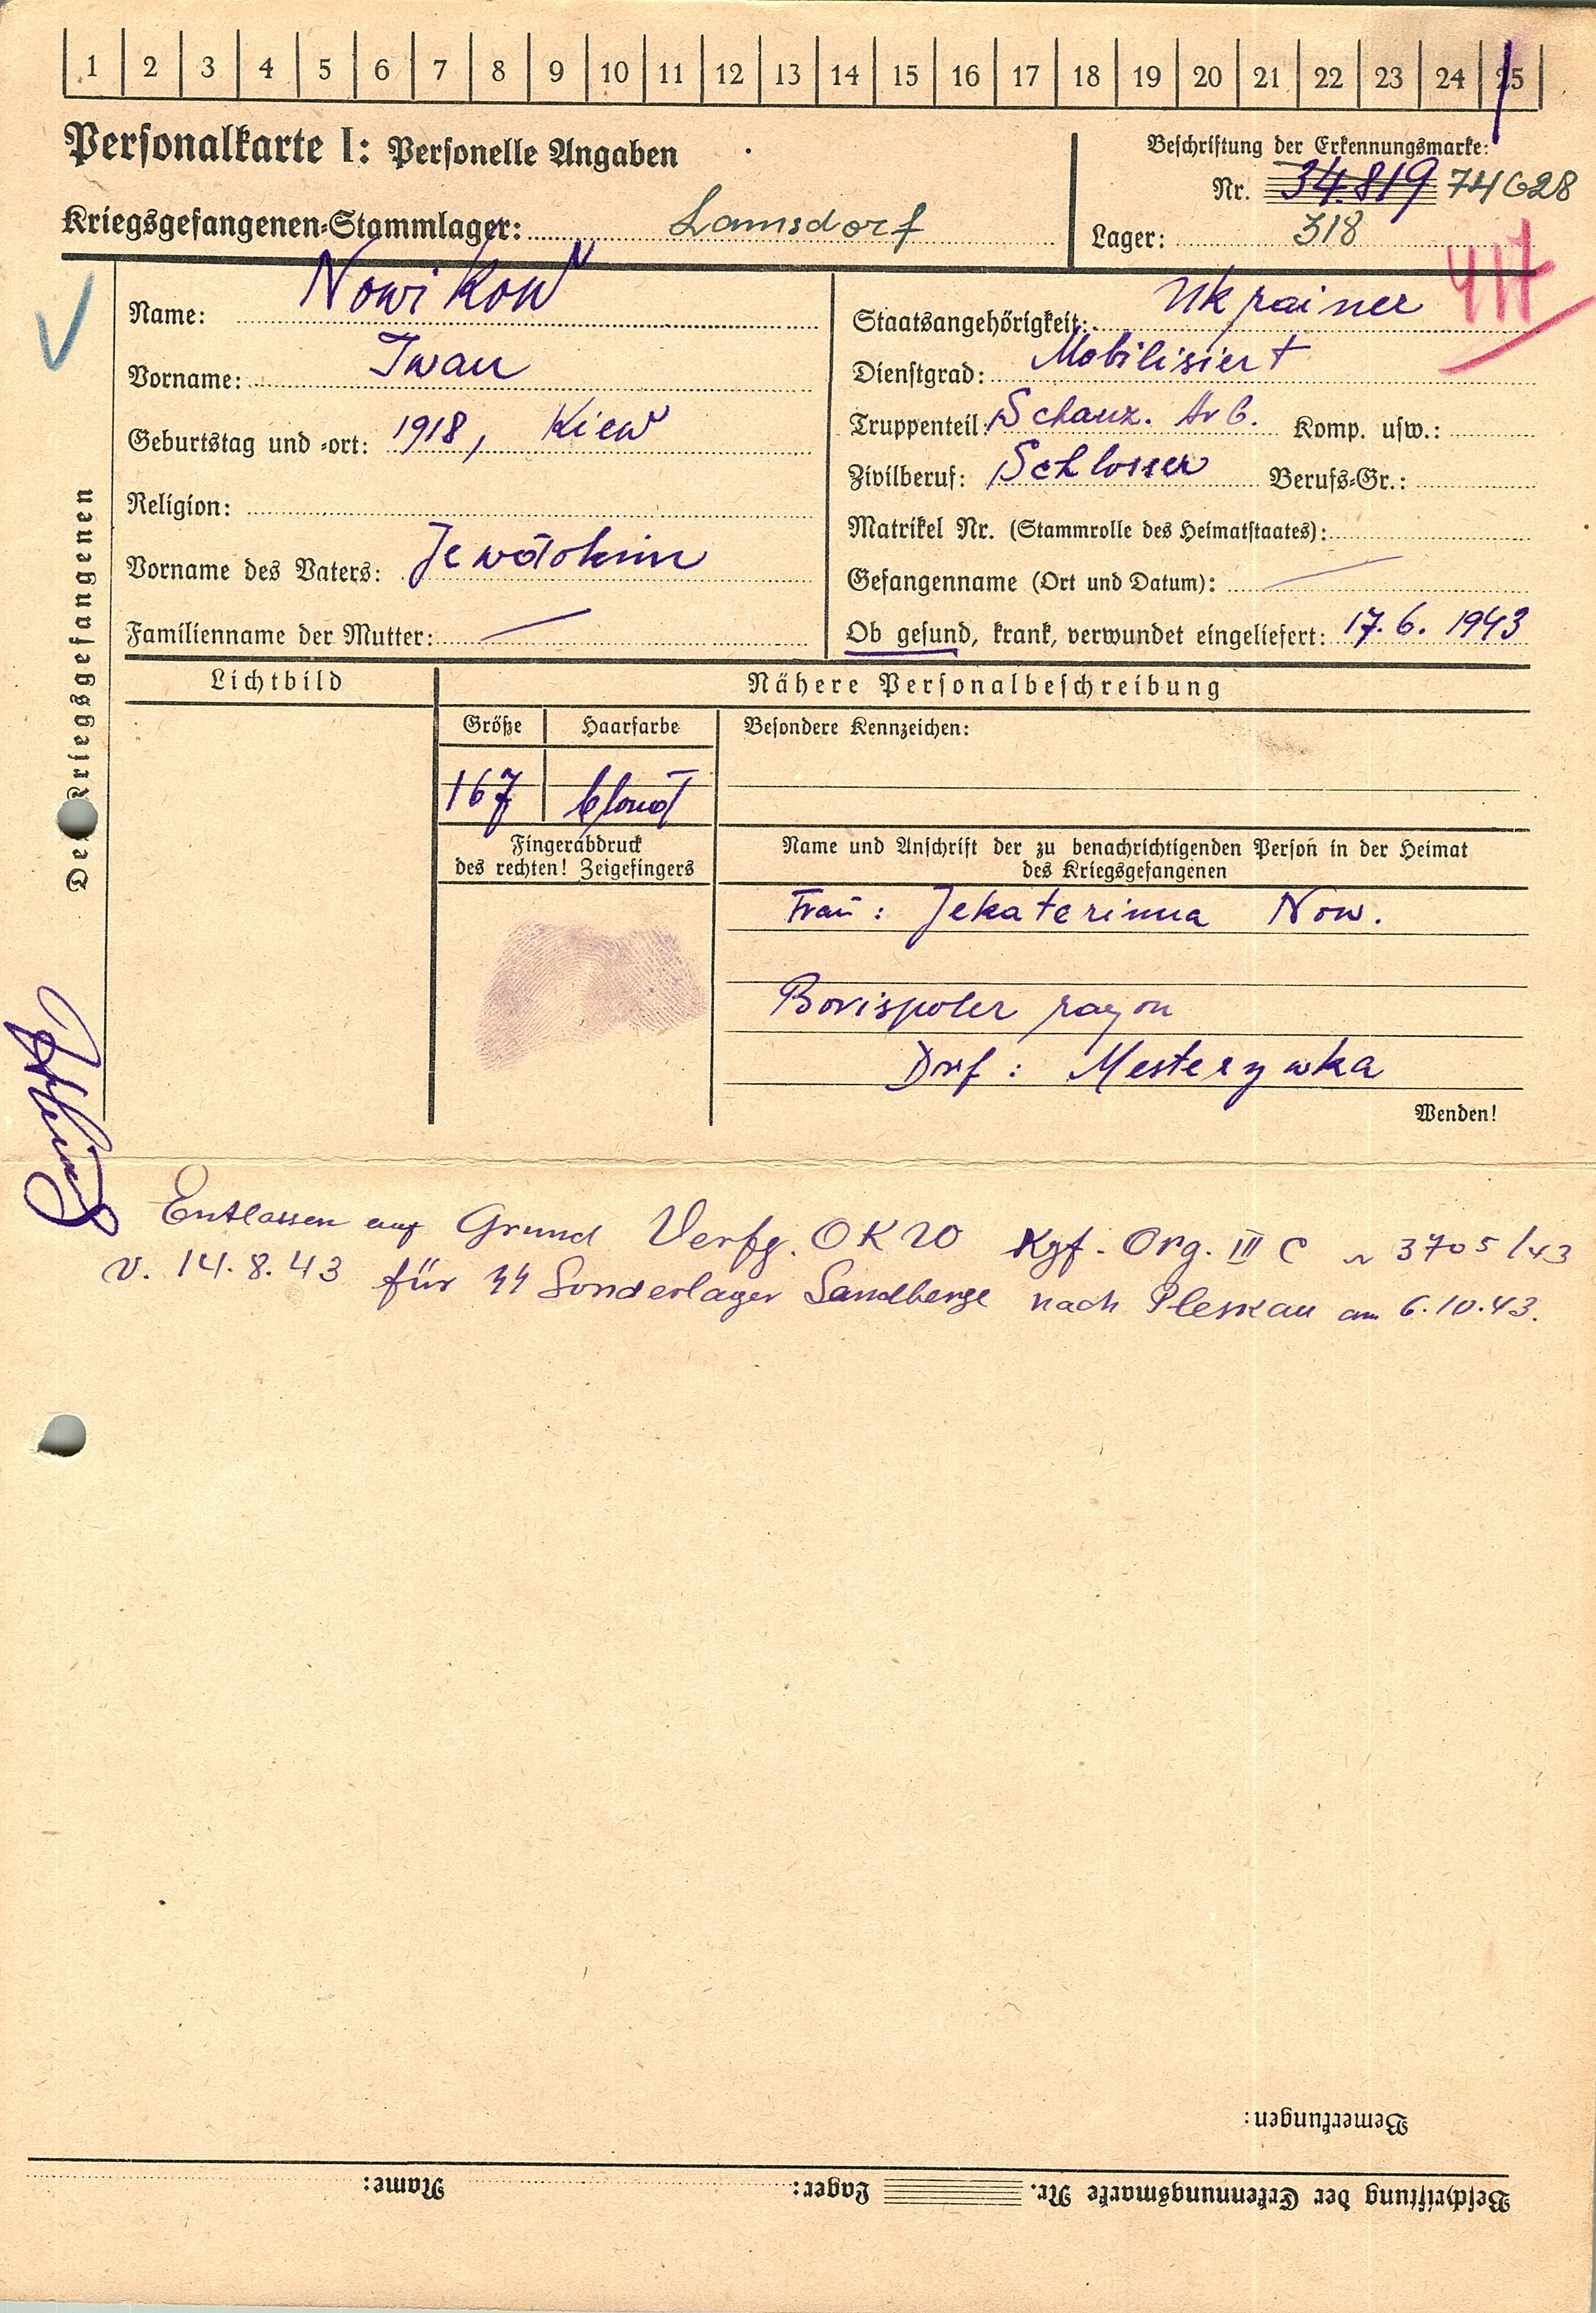 1 2 3 4 5 6 7 8 9 10 11 12 13 14 15 16 17 18 19 20 21 22 23 24 25
Personalkarte I: Personelle Angaben
Beschriftung der Erkennungsmarke:
Nr. 34.819 74628
Kriegsgefangenen-Stammlager: Lamsdorf
Lager: 318
417
Des Kriegsgefangenen
Name: Nowikow
Vorname: Iwan
Geburtstag und -ort: 1918, Kiew
Religion:
Vorname des Vaters: Jewdokim
Familienname der Mutter: —
Staatsangehörigkeit: Ukrainer
Dienstgrad: Mobilisiert
Truppenteil: Schanz. Arb. Komp. usw.:
Zivilberuf: Schlosser Berufs-Gr.:
Matrikel Nr. (Stammrolle des Heimatstaates):
Gefangennahme (Ort und Datum): —
Ob gesund, krank, verwundet eingeliefert: 17.6.1943
Lichtbild
Nähere Personalbeschreibung
Größe Haarfarbe Besondere Kennzeichen:
167 blond
Fingerabdruck
des rechten! Zeigefingers
Name und Anschrift der zu benachrichtigenden Person in der Heimat
des Kriegsgefangenen
Frau: Jekaterinna Now.
Borispoler rayon
Dorf: Mesterywka
Wenden!
Entlassen auf Grund Verfg. OKW Kgf. Org. III C 3705/43
v. 14.8.43 für SS Sonderlager Sandberge nach Pleskau am 6.10.43.
Bemerkungen:
Beschriftung der Erkennungsmarke Nr. Lager: Name: